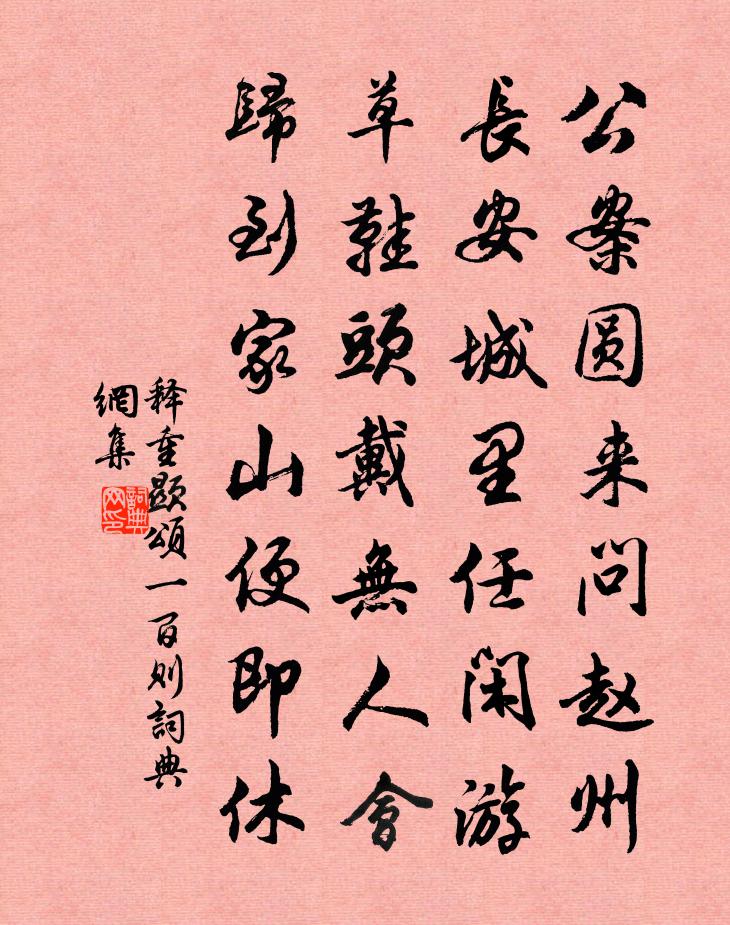 公案圆来问赵州
長安城里任閑游
草鞋頭戴無人會
歸到家山便即休
释重顯頌一百则詞典
網集
詞典
网印